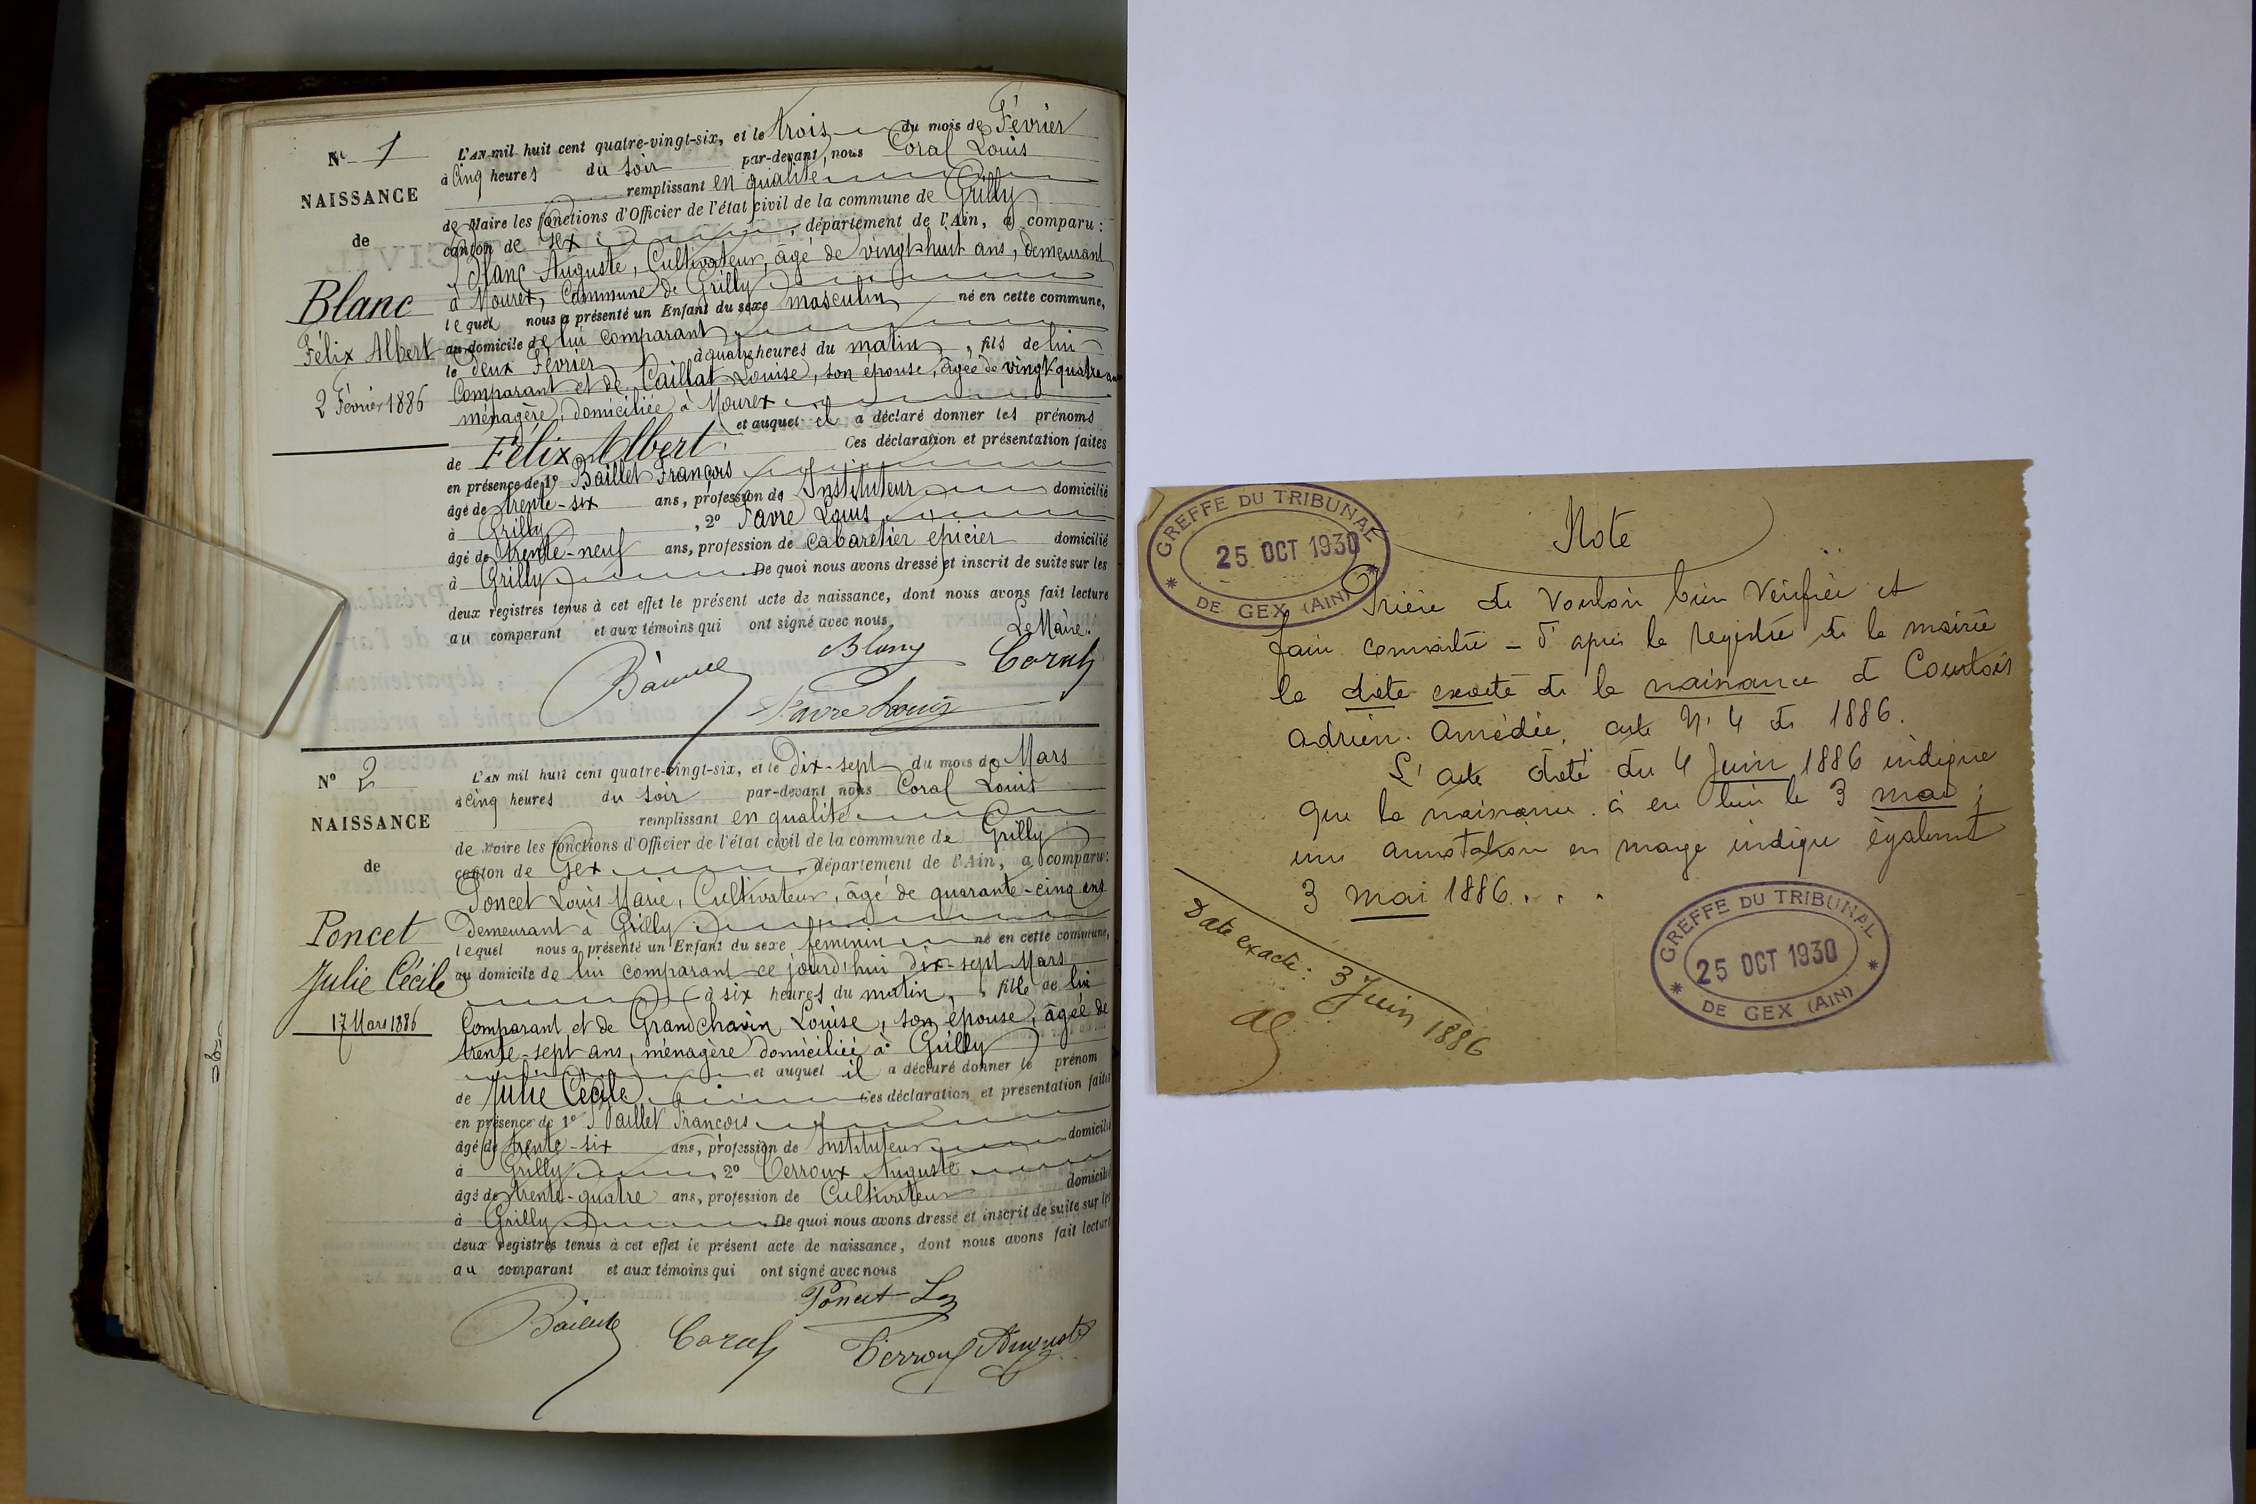 N° 1
NAISSANCE
de
Blanc
Félix Albert
2 Février 1886
L'AN mil huit cent quatre-vingt-six, et le trois du mois de Février
à cinq heures du soir par-devant nous Coral Louis
remplissant en qualité
de Maire les fonctions d'Officier de l'état civil de la commune de Grilly
canton de Gex, département de l'Ain, a comparu :
Blanc Auguste, Cultivateur, âgé de vingt-huit ans, demeurant
à Mourex, Commune de Grilly
lequel nous a présenté un Enfant du sexe masculin né en cette commune,
au domicile de lui comparant
le deux Février à quatre heures du matin, fils de lui
Comparant et de Caillat Louise, son épouse, âgée de vingt-quatre ans
ménagère, domiciliée à Mourex
et auquel il a déclaré donner les prénoms
de Félix Albert. Ces déclaration et présentation faites
en présence de 1° Baillet François
âgé de trente-six ans, profession de Instituteur domicilié
à Grilly, 2° Favre Louis
âgé de trente-neuf ans, profession de cabaretier épicier domicilié
à Grilly De quoi nous avons dressé et inscrit de suite sur les
deux registres tenus à cet effet le présent acte de naissance, dont nous avons fait lecture
au comparant et aux témoins qui ont signé avec nous.
Le Maire.
Blanc
Coral
Favre Louis
N° 2
NAISSANCE
de
Poncet
Julie Cécile
17 Mars 1886
L'AN mil huit cent quatre-vingt-six, et le dix-sept du mois de Mars
à cinq heures du soir par-devant nous Coral Louis
remplissant en qualité
de Maire les fonctions d'Officier de l'état civil de la commune de Grilly
canton de Gex, département de l'Ain, a comparu :
Poncet Louis Marie, Cultivateur, âgé de quarante-cinq ans
demeurant à Grilly
lequel nous a présenté un Enfant du sexe féminin né en cette commune,
au domicile de lui comparant ce jourd'hui dix-sept Mars
à six heures du matin, fille de lui
Comparant et de Grandchavin Louise, son épouse, âgée de
trente-sept ans, ménagère domiciliée à Grilly
et auquel il a déclaré donner le prénom
de Julie Cécile Ces déclaration et présentation faites
en présence de 1° Baillet François
âgé de trente-six ans, profession de Instituteur domicilié
à Grilly 2° Verroux Auguste
âgé de trente-quatre ans, profession de Cultivateur domicilié
à Grilly De quoi nous avons dressé et inscrit de suite sur les
deux registres tenus à cet effet le présent acte de naissance, dont nous avons fait lecture
au comparant et aux témoins qui ont signé avec nous
Poncet
Coral
Verroux Auguste
GREFFE DU TRIBUNAL
25 OCT 1930
DE GEX (AIN)
Note
Prière de vouloir bien vérifier et
faire connaître - d'après le registre de la mairie
la date exacte de la naissance de Courtois
Adrien. Amédée, acte N° 4 de 1886.
L'acte daté du 4 Juin 1886 indique
que la naissance à eu lieu le 3 mai ;
une annotation en marge indique également
3 mai 1886 . . .
Date exacte : 3 Juin 1886
GREFFE DU TRIBUNAL
25 OCT 1930
DE GEX (AIN)